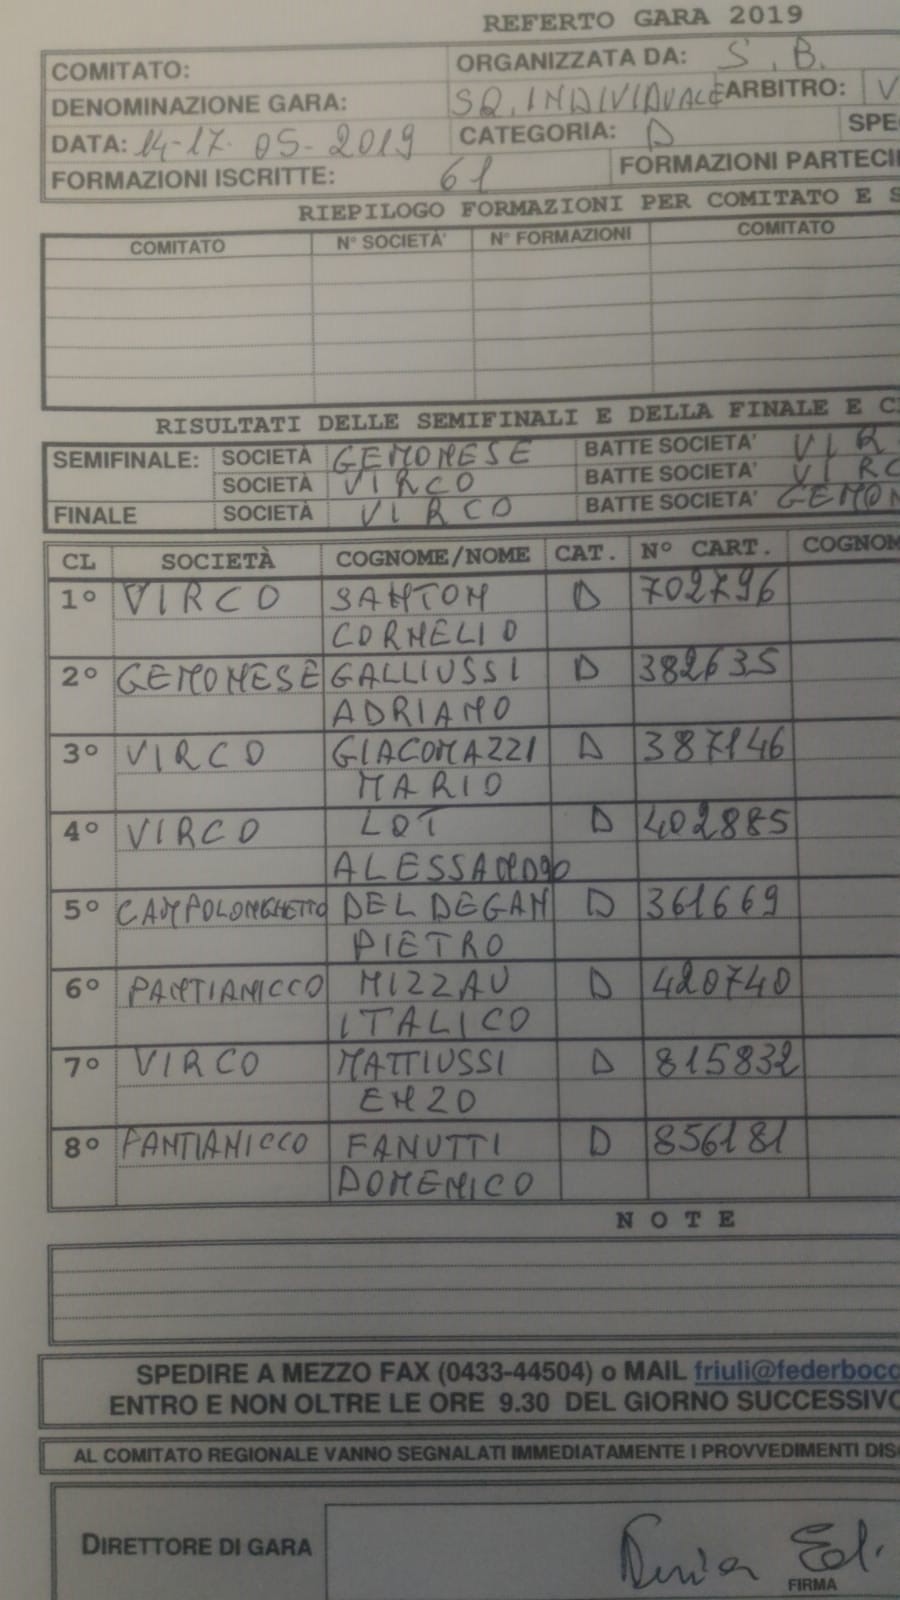 REFERTO GARA 2019
COMITATO: ORGANIZZATA DA: S. B.
DENOMINAZIONE GARA: SQ. INDIVIDUALE ARBITRO: V
DATA: 14-17-05-2019 CATEGORIA: D SPE
FORMAZIONI ISCRITTE: 61 FORMAZIONI PARTECI
RIEPILOGO FORMAZIONI PER COMITATO E S
COMITATO N° SOCIETÀ' N° FORMAZIONI COMITATO
RISULTATI DELLE SEMIFINALI E DELLA FINALE E C
SEMIFINALE: SOCIETÀ GEMONESE BATTE SOCIETA' VIR
SOCIETÀ VIRCO BATTE SOCIETA' VIRC
FINALE SOCIETÀ VIRCO BATTE SOCIETA' GEMON
CL SOCIETÀ COGNOME/NOME CAT. N° CART. COGNOM
1° VIRCO SANTON D 702796
CORNELIO
2° GEMONESE GALLIUSSI D 382635
ADRIANO
3° VIRCO GIACOMAZZI D 387146
MARIO
4° VIRCO LOT D 402885
ALESSANDRO
5° CAMPOLONGHETTO DEL DEGAN D 361669
PIETRO
6° PANTIANICCO MIZZAU D 420740
ITALICO
7° VIRCO MATTIUSSI D 815832
ENZO
8° PANTIANICCO FANUTTI D 856181
DOMENICO
NOTE
SPEDIRE A MEZZO FAX (0433-44504) o MAIL friuli@federbocc
ENTRO E NON OLTRE LE ORE 9.30 DEL GIORNO SUCCESSIVO
AL COMITATO REGIONALE VANNO SEGNALATI IMMEDIATAMENTE I PROVVEDIMENTI DIS
DIRETTORE DI GARA
FIRMA